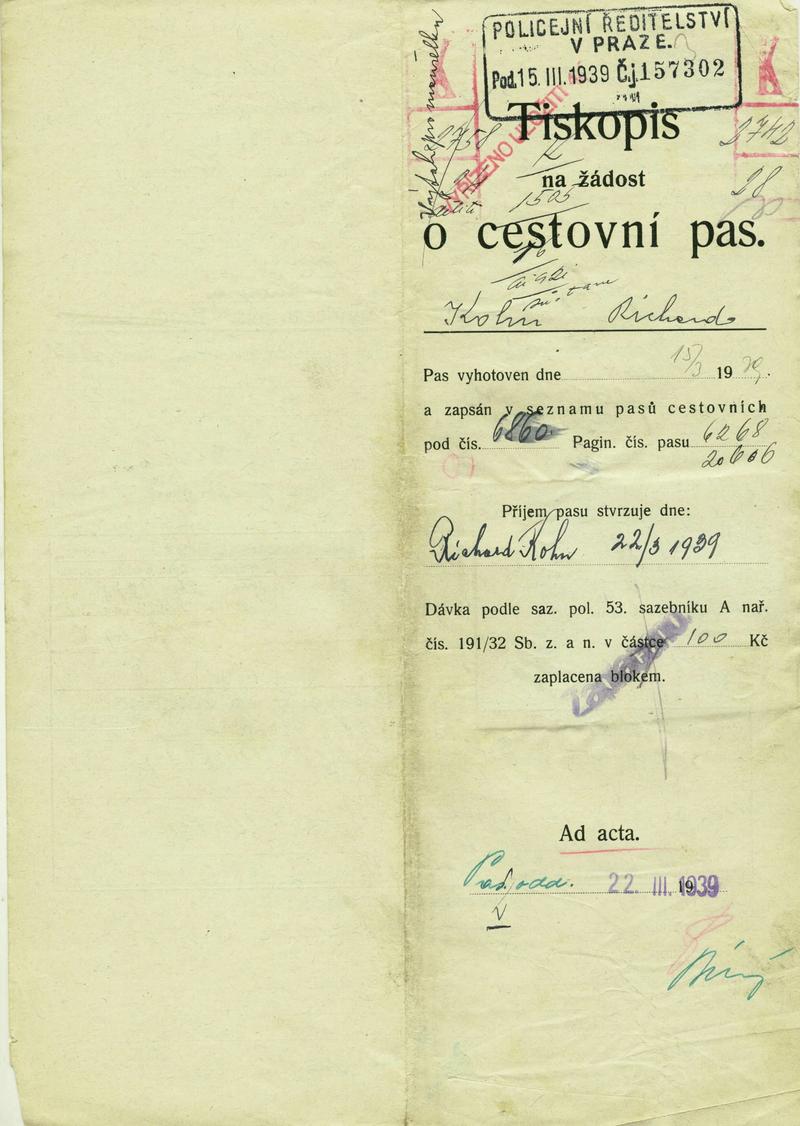 POLICEJNÍ ŘEDITELSTVÍ
V PRAZE.
Pod. 15. III. 1939 Č.j. 157302
K
K
Tiskopis
2758
2742
na žádost
28
1505
o cestovní pas.
Kohn Richard
Pas vyhotoven dne 15/3 1939.
a zapsán v seznamu pasů cestovních
pod čís. 6860 Pagin. čís. pasu 6268
20606
Příjem pasu stvrzuje dne:
Richard Kohn 22/3 1939
Dávka podle saz. pol. 53. sazebníku A nař.
čís. 191/32 Sb. z. a n. v částce 100 Kč
zaplacena blokem.
Ad acta.
Pas. odd. 22. III. 1939
V